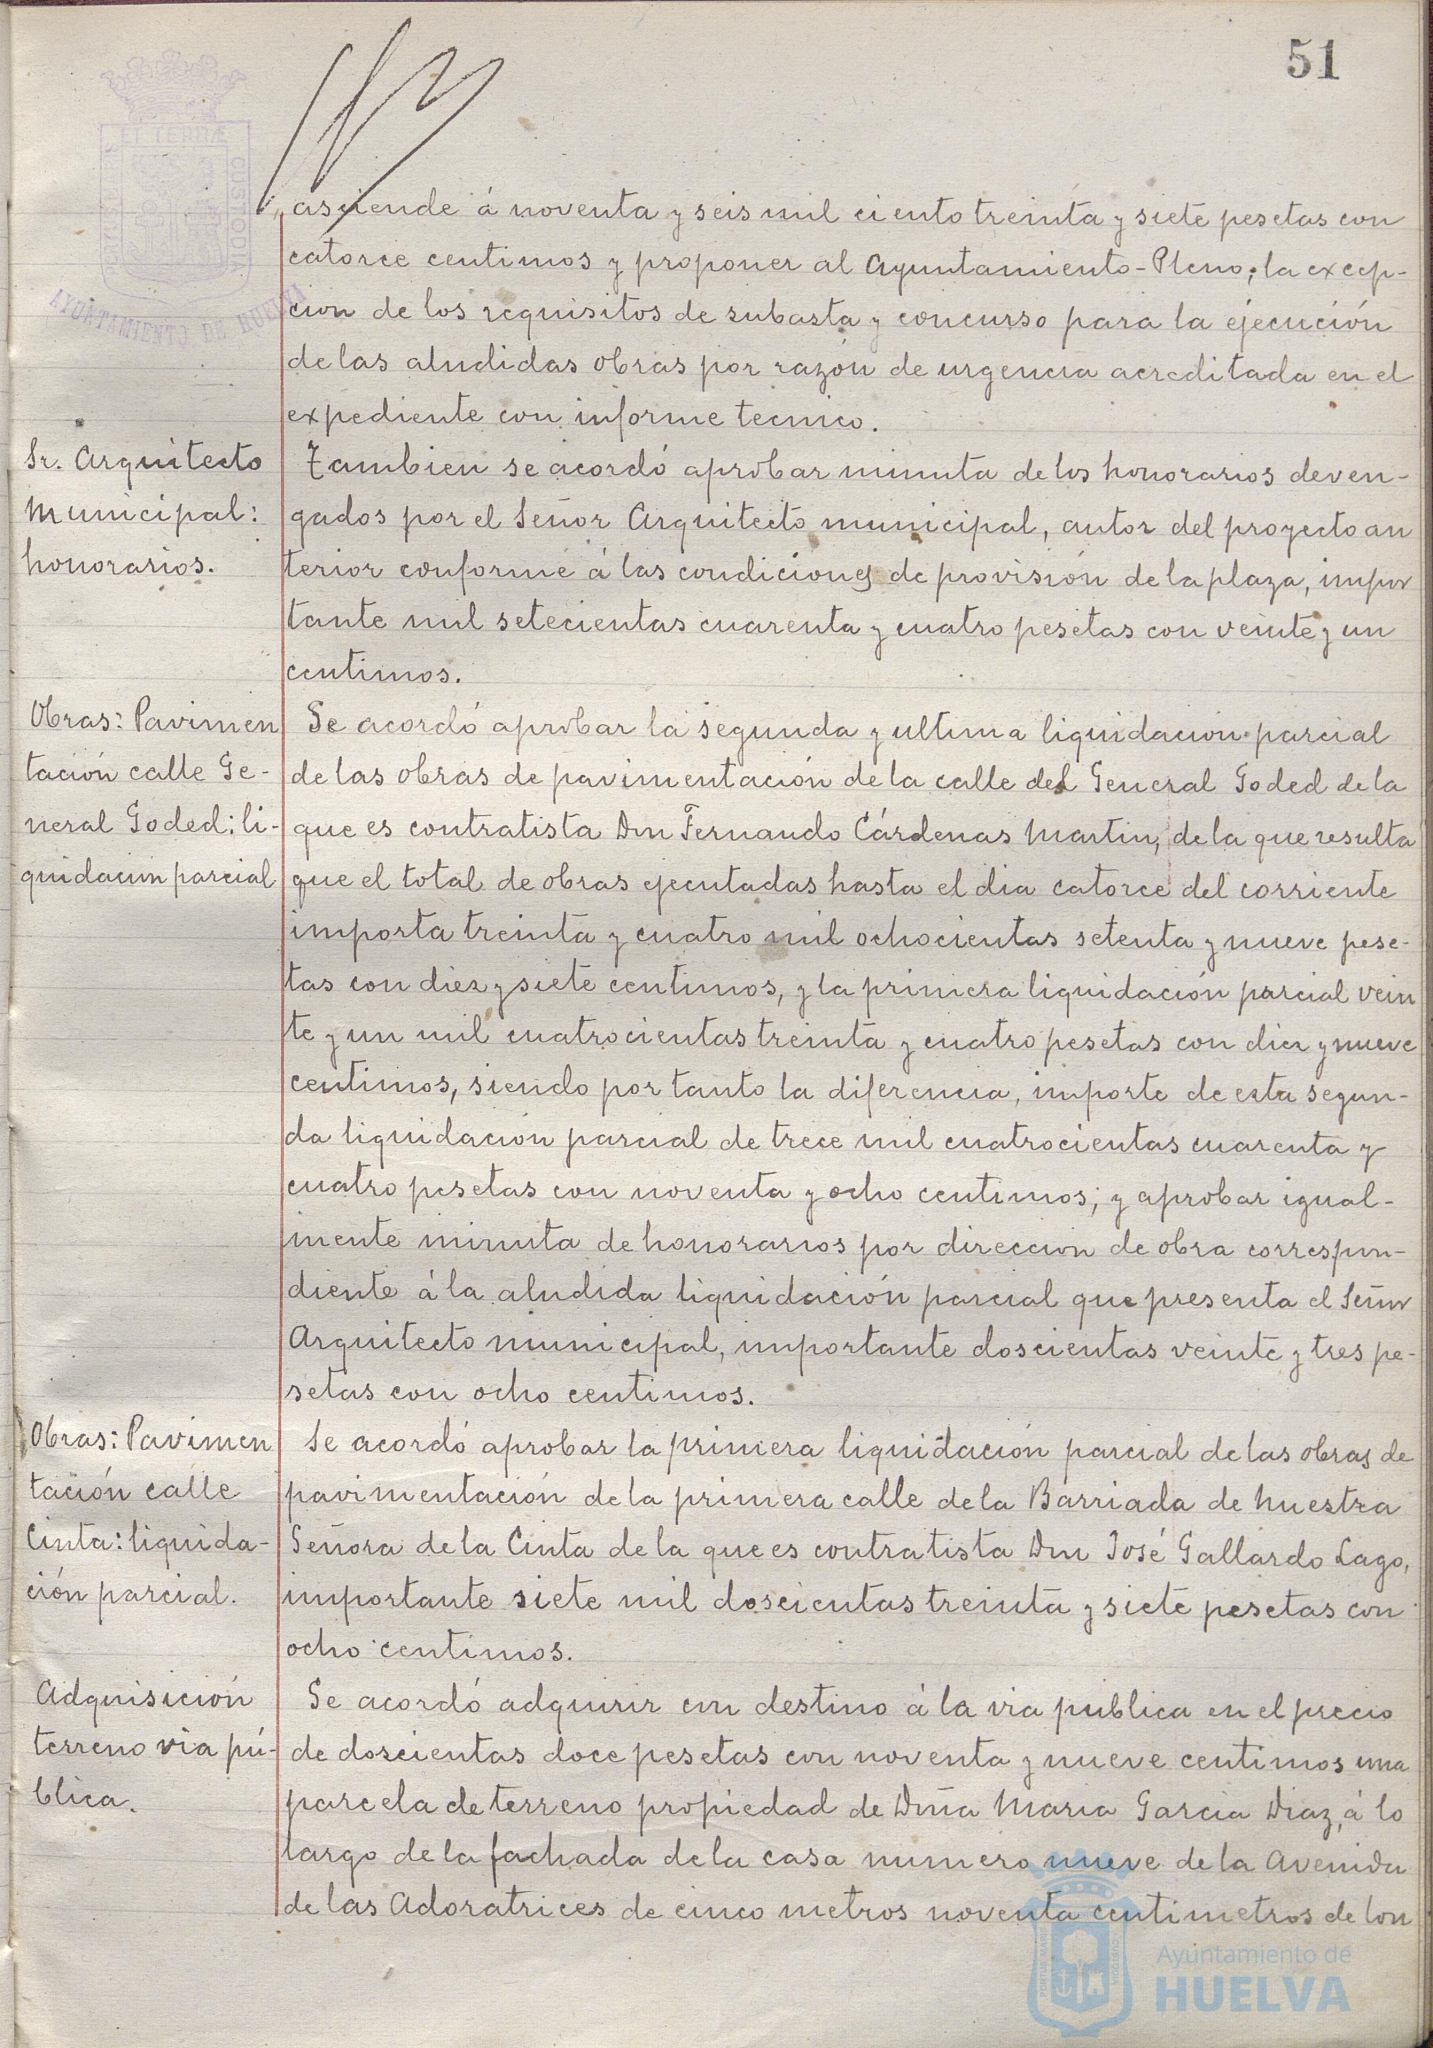 51
PORTUS MARIS ET TERRÆ CUSTODIA
AYUNTAMIENTO DE HUELVA
asciende á noventa y seis mil ciento treinta y siete pesetas con
catorce centimos y proponer al Ayuntamiento-Pleno, la excep-
cion de los requisitos de subasta y concurso para la ejecución
de las aludidas obras por razón de urgencia acreditada en el
expediente con informe tecnico.
Sr. Arquitecto
Municipal:
honorarios.
Tambien se acordó aprobar minuta de los honorarios deven-
gados por el Señor Arquitecto municipal, autor del proyecto an
terior conforme á las condiciones de provisión de la plaza, impor
tante mil setecientas cuarenta y cuatro pesetas con veinte y un
centimos.
Obras: Pavimen
tación calle Ge-
neral Goded: li-
quidacion parcial
Se acordó aprobar la segunda y ultima liquidacion parcial
de las obras de pavimentación de la calle del General Goded de la
que es contratista Don Fernando Cárdenas Martin, de la que resulta
que el total de obras ejecutadas hasta el dia catorce del corriente
importa treinta y cuatro mil ochocientas setenta y nueve pese-
tas con diez y siete centimos, y la primera liquidación parcial vein
te y un mil cuatrocientas treinta y cuatro pesetas con diez y nueve
centimos, siendo por tanto la diferencia, importe de esta segun-
da liquidación parcial de trece mil cuatrocientas cuarenta y
cuatro pesetas con noventa y ocho centimos; y aprobar igual-
mente minuta de honorarios por direccion de obra correspon-
diente á la aludida liquidación parcial que presenta el Señor
Arquitecto municipal, importante doscientas veinte y tres pe-
setas con ocho centimos.
Obras: Pavimen
tación calle
Cinta: liquida-
ción parcial.
Se acordó aprobar la primera liquidación parcial de las obras de
pavimentación de la primera calle de la Barriada de Nuestra
Señora de la Cinta de la que es contratista Don José Gallardo Lago,
importante siete mil doscientas treinta y siete pesetas con
ocho centimos.
Adquisición
terreno via pú-
blica.
Se acordó adquirir con destino á la via publica en el precio
de doscientas doce pesetas con noventa y nueve centimos una
parcela de terreno propiedad de Dña Maria Garcia Diaz, á lo
largo de la fachada de la casa numero nueve de la Avenida
de las Adoratrices de cinco metros noventa centimetros de lon
Ayuntamiento de
HUELVA